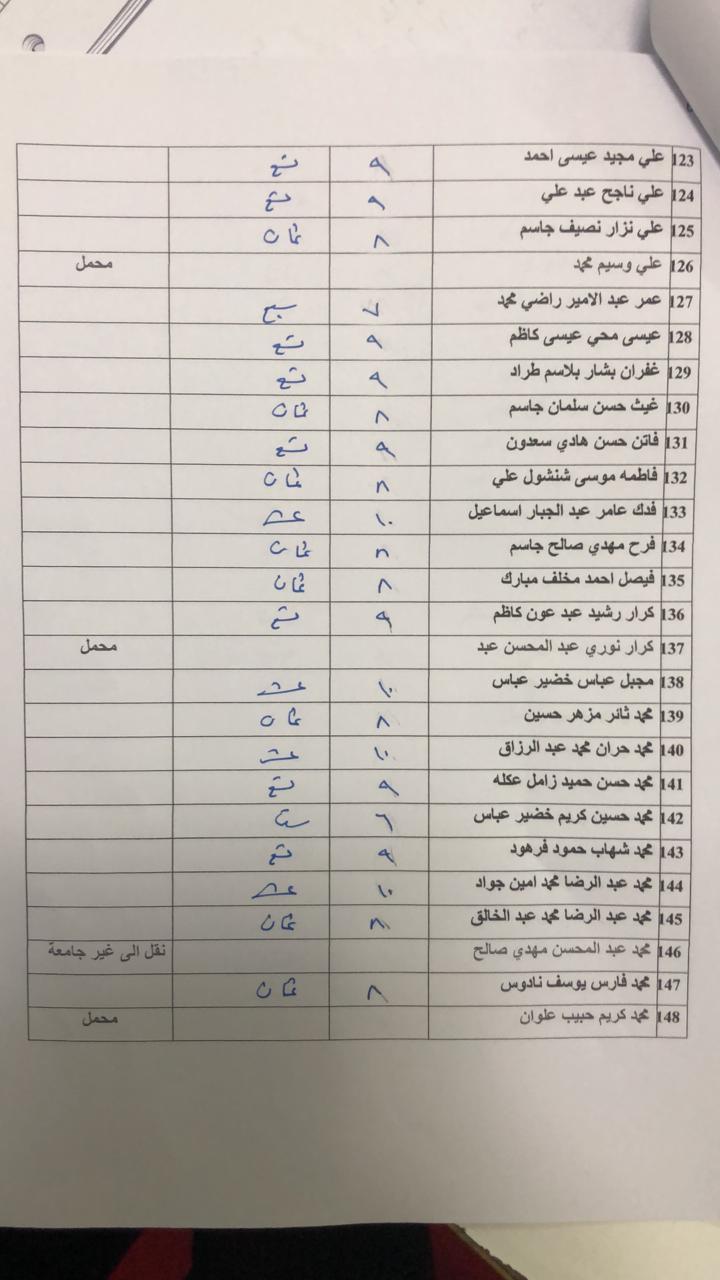 123 علي مجيد عيسى احمد ٩ تسع
124 علي ناجح عبد علي ٩ تسع
125 علي نزار نصيف جاسم ٨ ثمان
126 علي وسيم محمد محمل
127 عمر عبد الامير راضي محمد ٧ سبع
128 عيسى محي عيسى كاظم ٩ تسع
129 غفران بشار بلاسم طراد ٩ تسع
130 غيث حسن سلمان جاسم ٨ ثمان
131 فاتن حسن هادي سعدون ٩ تسع
132 فاطمه موسى شنشول علي ٨ ثمان
133 فدك عامر عبد الجبار اسماعيل ١٠ عشر
134 فرح مهدي صالح جاسم ٨ ثمان
135 فيصل احمد مخلف مبارك ٨ ثمان
136 كرار رشيد عبد عون كاظم ٩ تسع
137 كرار نوري عبد المحسن عبد محمل
138 مجبل عباس خضير عباس ١٠ عشر
139 محمد ثائر مزهر حسين ٨ ثمان
140 محمد حران محمد عبد الرزاق ١٠ عشر
141 محمد حسن حميد زامل عكله ٩ تسع
142 محمد حسين كريم خضير عباس ٦ ست
143 محمد شهاب حمود فرهود ٩ تسع
144 محمد عبد الرضا محمد امين جواد ١٠ عشر
145 محمد عبد الرضا محمد عبد الخالق ٨ ثمان
146 محمد عبد المحسن مهدي صالح نقل الى غير جامعة
147 محمد فارس يوسف نادوس ٨ ثمان
148 محمد كريم حبيب علوان محمل